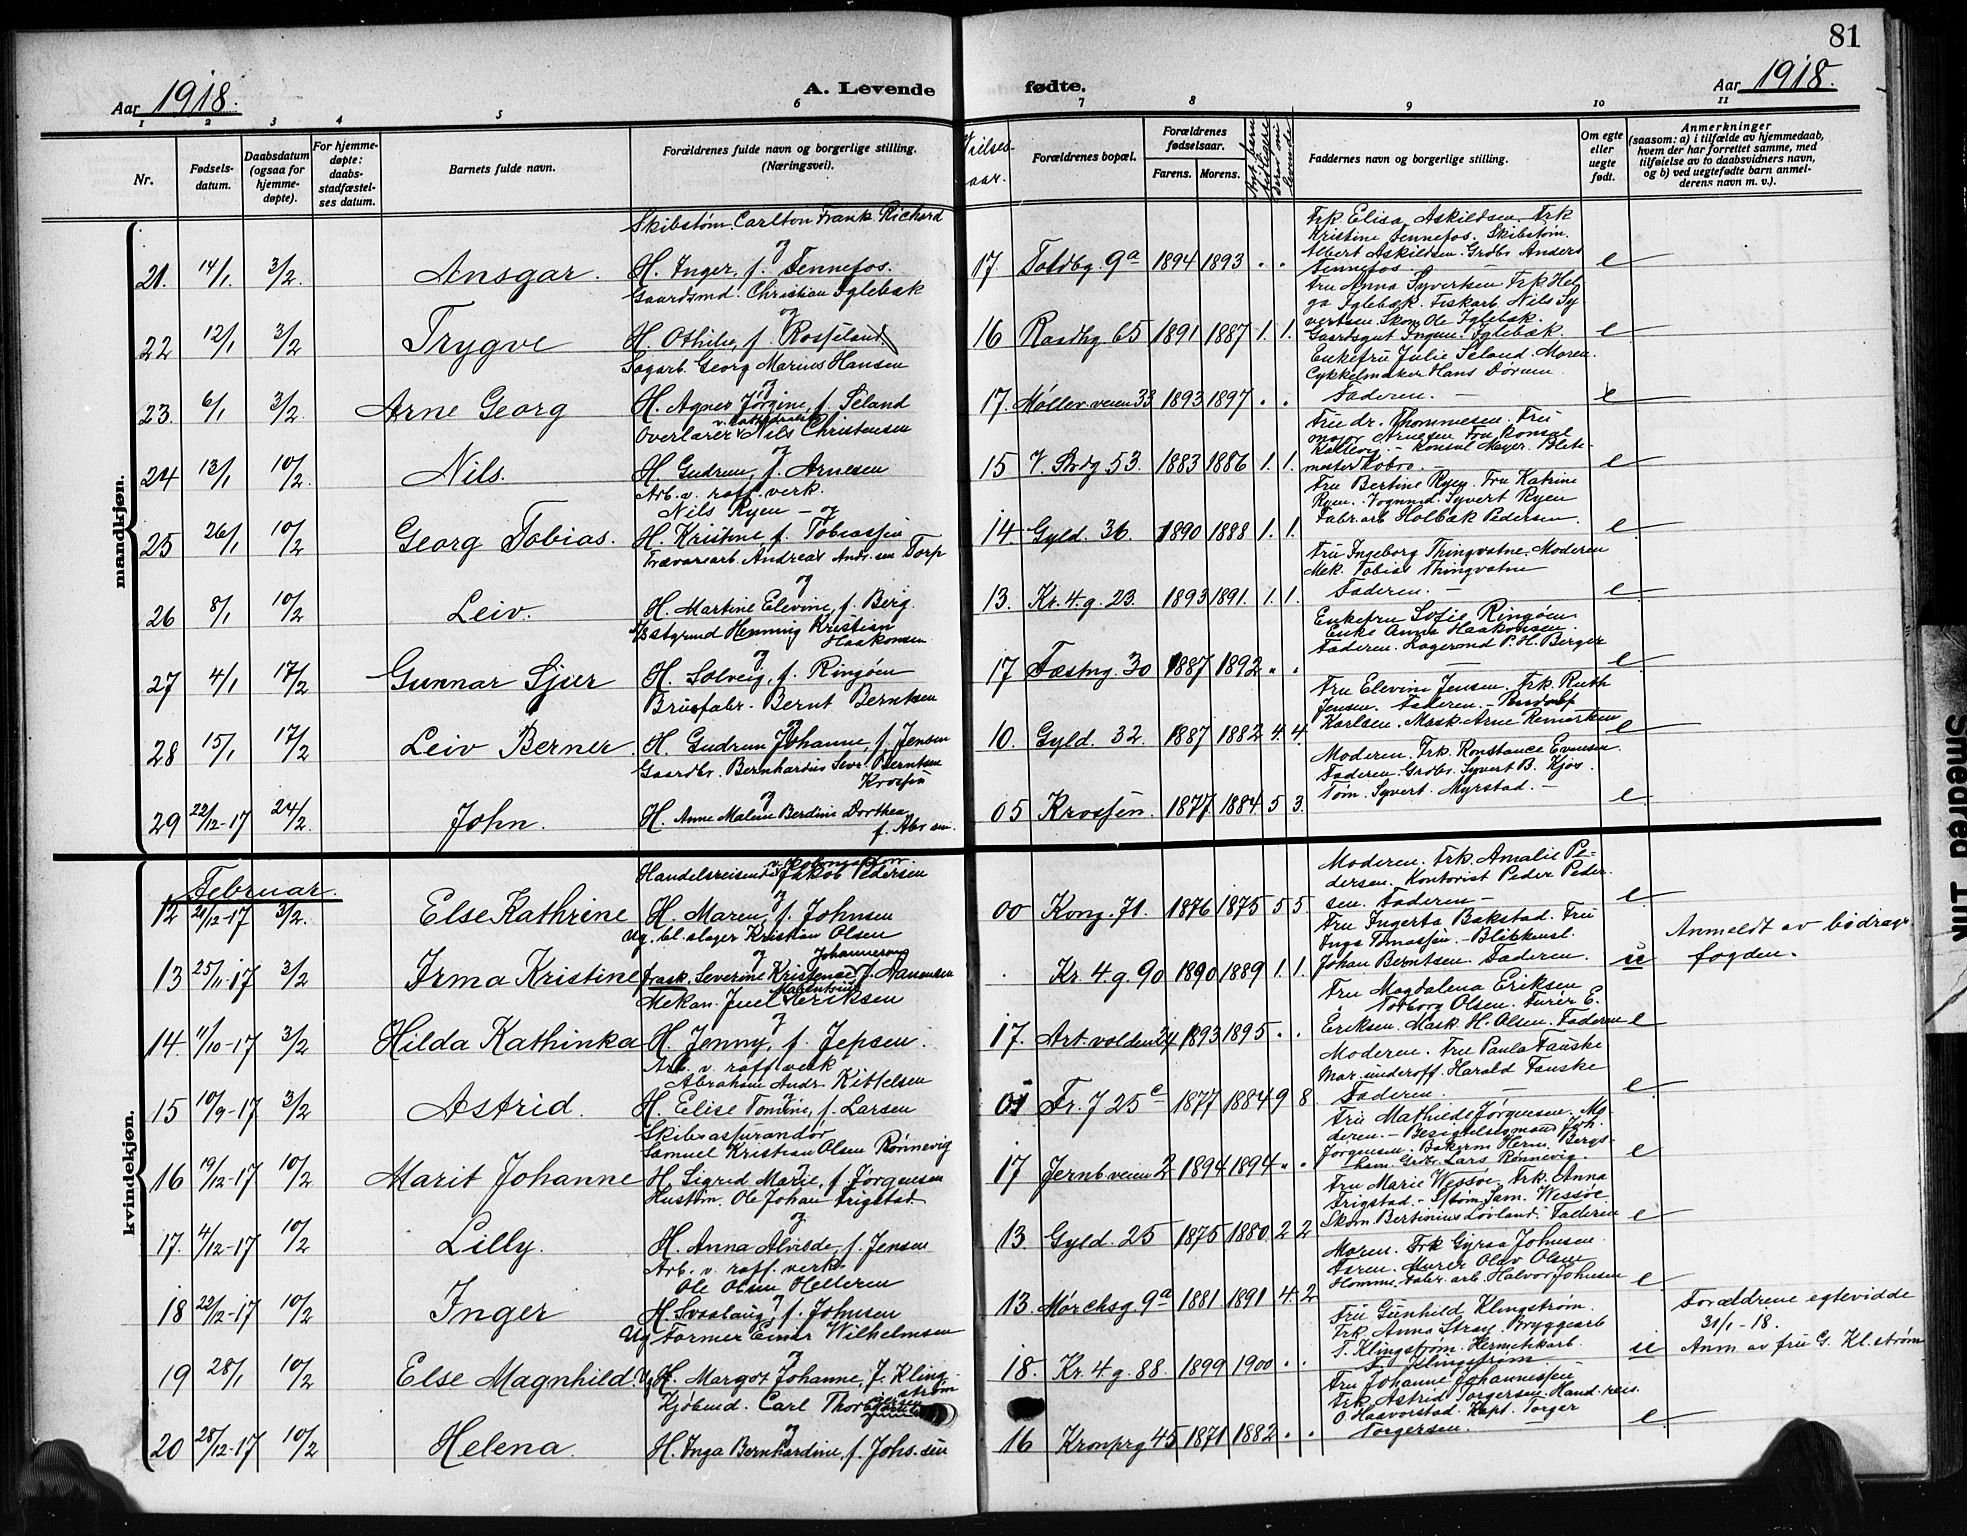 81
Aar 1918.
A. Levende fødte.
Aar 1918.
1 2 3 4 5 6 7 8 9 10 11
Nr.
Fødsels-
datum.
Daabsdatum
(ogsaa for
hjemme-
døpte).
For hjemme-
døpte:
daabs-
stadfæstel-
ses datum.
Barnets fulde navn.
Forældrenes fulde navn og borgerlige stilling.
(Næringsvei).
Vielses-
aar.
Forældrenes bopæl.
Forældrenes
fødselsaar.
Farens. Morens.
Faddernes navn og borgerlige stilling.
Om egte
eller
uegte
født.
Anmerkninger
(saasom: a) i tilfælde av hjemmedaab,
hvem der har forrettet samme, med
tilføielse av to daabsvidners navn,
og b) ved uegtefødte barn anmel-
derens navn m. v.).
mandkjøn.
21. 14/1 3/2. Ansgar.
Skibstøm. Carlton Frank Richard
og
H. Inger, f. Tennefos.
17 Toldbg. 9a 1894 1893 " "
Frk. Elisa Askildsen. Frk
Kristine Tennefos. Skibstøm.
Albert Askildsen. Grdbr. Anders
Tennefos.
e
22 12/1 3/2 Trygve
Gaardsmd. Christian Iglebæk
og
H. Othilie, f. Rosseland
16 Raadhg 65 1891 1887 1. 1.
Fru Anna Syvertsen Frk Hel
ga Iglebæk. Fiskarb. Nils Sy
vertsen. Skom. Ole Iglebæk.
Gaardsgut Ingem. Iglebæk.
e
23. 6/1 3/2. Arne Georg
Sagarb. Georg Marius Hansen
og
H. Agnes Jørgine, f. Seland
17. Møllerveien 33 1893 1897 " "
Enkefru Julie Seland. Moren.
Cykkelmaker Hans Dorum.
Faderen.
e
24 13/1 10/2. Nils.
Overlærer v. Katedralsk. Nils Christensen
og
H. Gudrun, f. Arnesen
15 V. Strdg 53. 1883 1886 1. 1.
Fru dr. Thommesen. Fru
major Arnesen Fru Konsul
e
25 26/1 10/2 Georg Tobias.
Arb. v. raff. verk.
Nils Ryen - og
H. Kristine f. Tobiassen
14. Gyld. 36. 1890 1888 1. 1.
Fru Bertine Ryen. Fru Katrine
Ryen. Vognmd. Syvert Ryen
Fabr. arb Holbæk Pedersen.
e
26 8/1 10/2 Leiv.
Trævarearb. Andreas Andr.sen Torp
og
H. Martine Elevine, f. Berg.
13. Kr. 4. g. 23. 1893 1891. 1. 1.
Fru Ingeborg Thingvatne. Moderen
Mek. Tobias Thingvatne
Faderen.
e
27 4/1 17/2 Gunnar Sjur
Henning Kristian
Haakonsen
og
H. Solveig, f. Ringøen
17 Fæstng. 30 1887 1892 " "
Enkefru Sofie Ringøen
Enke Anna Haakonsen.
Faderen. Lagermd P. H. Berger
e
28 15/1 17/2 Leiv Berner.
Brusfabr. Bernt Berntsen
og
H. Gudrun Johanne, f. Jensen
10. Gyld. 32. 1887 1882 4. 4.
Fru Elevine Jensen. Frk. Ruth
Jensen. Faderen. - Rudolf
Karlsen. Mask. Arne
e
29 22/12-17 24/2. John.
Gaardbr. Bernhardus Sevr. Berntsen
Krossen
og
H. Anne Malene Berdine Dorthea
f. Abr.sen.
05 Krossen. 1877 1884 5 3.
Moderen. Frk. Konstance Evensen.
Faderen. Grdbr. Syvert B. Kjos.
Tøm. Syvert Myrstad. -
e
kvindekjøn.
Februar.
12 21/12-17 3/2. Else Kathrine
Handelsreisende Jakob Pedersen
og
H. Maren, f. Johnsen
00 Kong. 71. 1876 1875 5 5.
Moderen. Frk. Amalie Pe-
dersen. Kontorist Peder Peder-
sen. Faderen -
e
13 25/11-17 3/2 Irma Kristine
Ug. bl. slager Kristian Olsen
og Johannesen
frask. Severine Kristense f. Aanensen
. Kr. 4 g. 90 1890 1889 1. 1.
Fru Ingerta Bakstad. Fru
Inga Tomassen. - Blikkensl.
Johan Berntsen. Faderen.
u
Anmeldt av bidrags-
fogden.
14. 11/10-17 3/2 Hilda Kathinka
Mekan. Juel Eriksen
og
H. Jenny, f. Jepsen.
17. Art. volden 24 1893 1895 " "
Fru Magdalena Eriksen
Torborg Olsen. Furer E.
Eriksen. Mask. H. Olsen. Faderen
e
15 10/9-17 3/2 Astrid.
Arb. v. raff verk
Abraham Andr. Kittelsen
og
H. Elise Tomine, f. Larsen
01 Fr. 7 25c 1877 1884 9 8
Moderen. Fru Paula Fauske
Mar. underoff. Harald Fauske
Faderen.
e
16 19/12-17 10/2 Marit Johanne
Skibsaspirandør
Samuel Kristian Olsen Rønnevig
og
H. Sigrid Marie, f. Jørgensen
17 Jernb veien 2 1894 1894 " "
Fru Mathilde Jørgensen. Mo-
deren. - Besigtelsesmand Joh.
Jørgensen. Bakerm Herm. Bergs-
ham. Grdbr. Lars Rønnevig.
e
17. 4/12-17 10/2 Lilly.
Hustøm. Ole Johan Frigstad.
og
H. Anna Alvilde, f. Jensen
13. Gyld. 25 1875 1880. 2 2
Fru Marie Wessøe. Frk. Anna
Frigstad. - S/tøm Sam. Wessøe.
Skom. Bertinius Løvland. Faderen
e
18 22/12-17 10/2 Inger
Arb. v. raff. verk.
Ole Olsen Helleren
og
H. Svaalaug, f. Johnsen
13. Mørchsg. 9a 1881 1891 4. 2
Moren. Frk Gyraa Johnsen.
Faren. Murer Olav Olsen
Homme. Fabr. arb. Halvor Johnsen
e
19 28/1 10/2 Else Magnhild.
Ug Former Einar Wilhelmsen
og
H. Margot Johanne, f. Kling-
strøm
18. Kr. 4 g. 88. 1899 1900 " "
Fru Gunhild Klingstrøm.
Frk. Anna Stray. Bryggearb
T. Klingstrøm. Hermetikarb.
F. Klingstrøm.
u
Forældrene egteviede
31/1-18.
Anm. av fru G. Kl.strøm
20 28/12-17 10/2 Helena.
Kjøbmd. Carl
og
H. Inga Bernhardine, f. Johs.sen
16 Kronprg 45 1871 1882 " "
Fru Johanne Johannessen
Frk. Astrid Torgersen. Hand. reis.
O. Haavorstad. Kapt. Torger
Torgersen.
e
Smedred Link